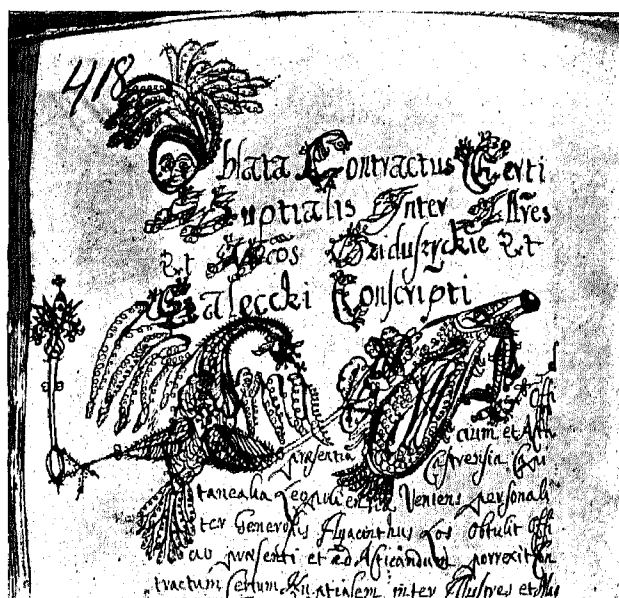 418
Oblata Contractus Certi
Nuptialis Inter Illres
Et Mcos Dziduszyckie Et
Galeccki Conscripti
Ad
Offi
cium et Acta
præsentia Castrensia Capi
tanealia Leopoliensia Veniens personali
ter Generosus Hyacinthus Łos Obtulit Offi
cio præsenti et ad Acticandum porrexit Con
tractum Certum Nuptialem inter Illustres et Mag